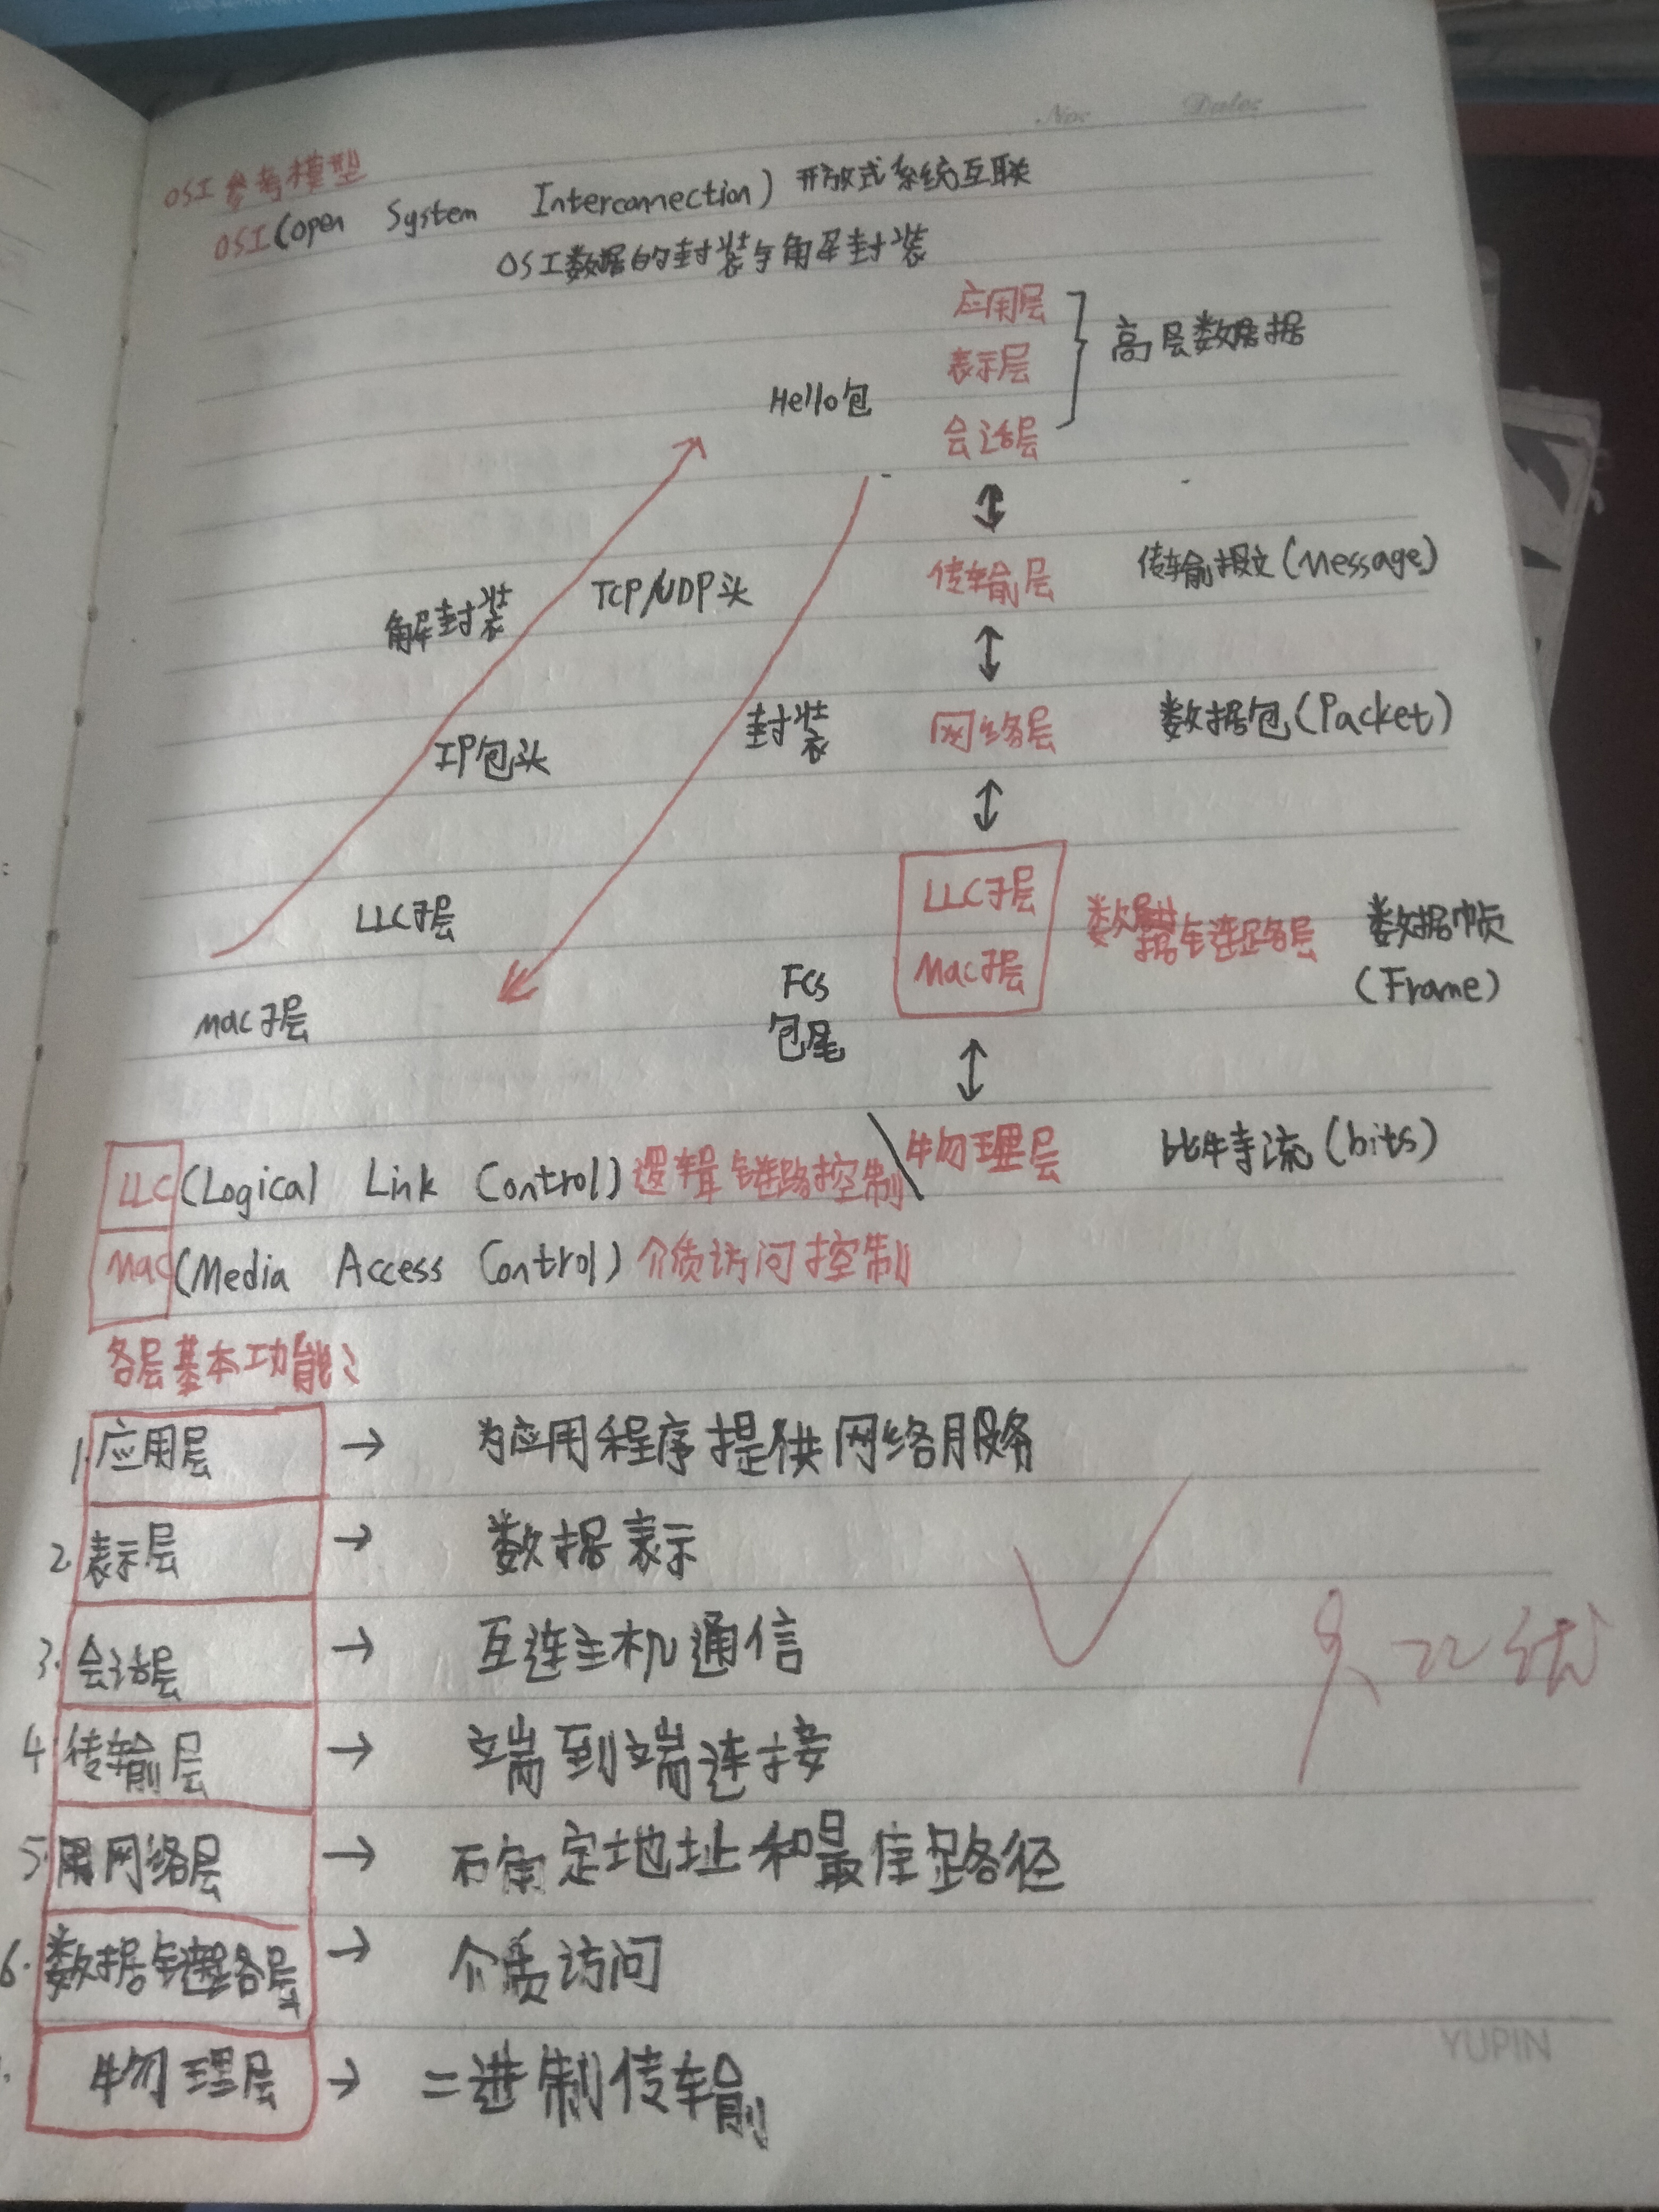 No: Date:
OSI参考模型
OSI(open System Interconnection) 开放式系统互联
OSI数据的封装与解封装
应用层
表示层 高层数据
Hello包
会话层
解封装 TCP/UDP头 传输层 传输报文(Message)
IP包头 封装 网络层 数据包(Packet)
LLC子层 LLC子层 数据链路层 数据帧
MAC子层 FCS Mac子层 (Frame)
包尾
LLC(Logical Link Control)逻辑链路控制 物理层 比特流(bits)
MAC(Media Access Control)介质访问控制
各层基本功能:
1.应用层 → 为应用程序提供网络服务
2.表示层 → 数据表示
3.会话层 → 互连主机通信
4.传输层 → 端到端连接
5.网络层 → 确定地址和最佳路径
6.数据链路层 → 介质访问
物理层 → 二进制传输
YUPIN